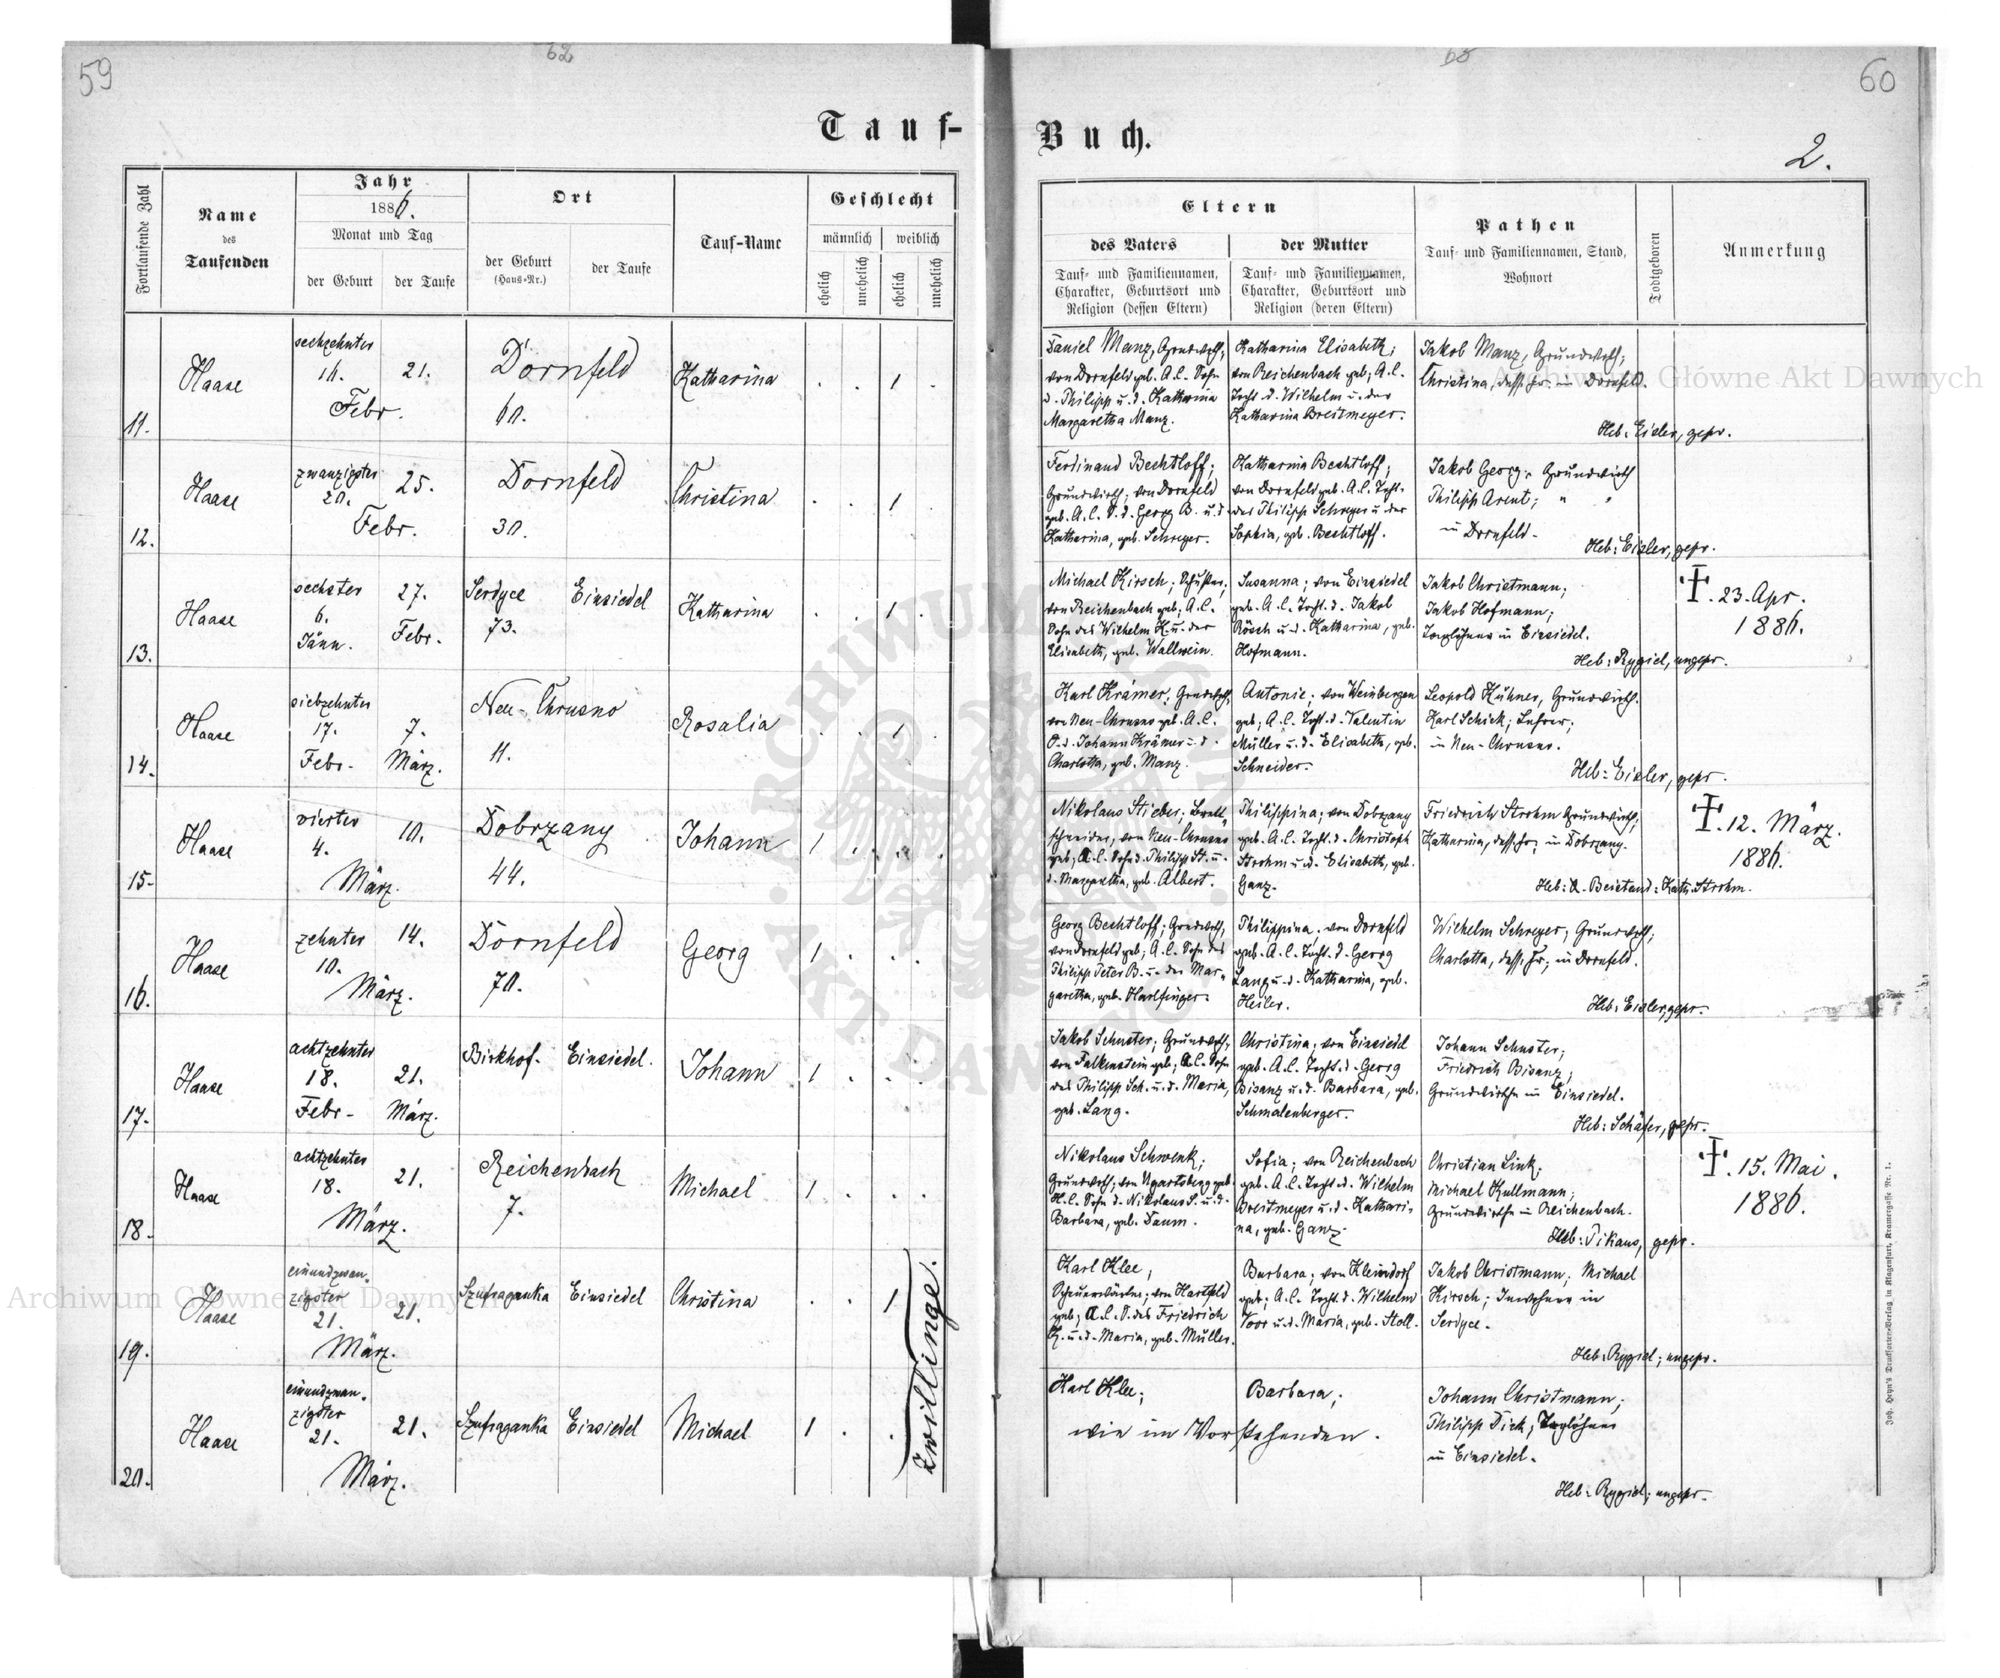 59
62
63
60
Tauf-
Buch.
2.
Fortlaufende Zahl
Name
des
Taufenden
Jahr
1886.
Monat und Tag
der Geburt
der Taufe
Ort
der Geburt
(Haus-Nr.)
der Taufe
Tauf-Name
Geschlecht
männlich
weiblich
ehelich
unehelich
ehelich
unehelich
Eltern
des Vaters
Tauf- und Familiennamen,
Charakter, Geburtsort und
Religion (dessen Eltern)
der Mutter
Tauf- und Familiennamen,
Charakter, Geburtsort und
Religion (deren Eltern)
Pathen
Tauf- und Familiennamen, Stand,
Wohnort
Todtgeboren
Anmerkung
11.
Haase
sechzehnter
16.
Febr.
21.
Dornfeld
60.
Katharina
. . 1 .
Daniel Manz, Grundwrth;
von Dornfeld geb. A.C. Sohn
d. Philipp u. d. Katharina
Margaretha Manz.
Katharina Elisabeth;
von Reichenbach geb; A.C.
Tocht. d. Wilhelm u. der
Katharina Breitmeyer.
Jakob Manz, Grundwrth;
Christina, dess. Fr. in Dornfeld.
Heb: Eisler, gepr.
12.
Haase
zwanzigster
20.
Febr.
25.
Dornfeld
30.
Christina
. . 1
Ferdinand Bechtloff;
Grundwirth; von Dornfeld
geb. A.C. S. d. Georg B. u. d.
Katharina, geb. Schreyer.
Katharina Bechtloff;
von Dornfeld geb. A.C. Tocht.
des Philipp Schreyer u. der
Sophia, geb. Bechtloff.
Jakob Georg, Grundwirth
Philipp Arent; " "
in Dornfeld.
Heb: Eisler, gepr.
13.
Haase
sechster
6.
Jänn.
27.
Febr.
Serdyce
73.
Einsiedel
Katharina
. . 1 .
Michael Kirsch; Schuster;
von Reichenbach geb; A.C.
Sohn des Wilhelm K. u. der
Elisabeth, geb. Wallwein.
Susanna; von Einsiedel
geb. A.C. Tocht. d. Jakob
Rösch u. d. Katharina, geb.
Hofmann.
Jakob Christmann;
Jakob Hofmann;
Taglöhner in Einsiedel.
Heb: Rygiel, ungepr.
†. 23. Apr.
1886.
14.
Haase
siebzehnter
17.
Febr.
7.
März.
Neu-Chrusno
11.
Rosalia
. . 1 .
Karl Krämer, Grundwrth,
von Neu-Chrusno geb. A.C.
S. d. Johann Krämer u. d.
Charlotta, geb. Manz.
Antonie; von Weinbergen
geb; A.C. Tocht. d. Valentin
Müller u. d. Elisabeth, geb.
Schneider.
Leopold Kühner, Grundwirth.
Karl Schick; Lehrer;
in Neu-Chrusno.
Heb: Eisler, gepr.
15.
Haase
vierter
4.
März.
10.
Dobrzany
44.
Johann
1 . . .
Nikolaus Stieber; Brett-
schneider, von Neu-Chrusno
geb; A.C. Sohn d. Philipp St. u.
d. Margaretha, geb. Albert.
Philippina; von Dobrzany
geb. A.C. Tocht. d. Christoph
Strohm u. d. Elisabeth, geb.
Ganz.
Friedrich Strohm Grundwirth;
Katharina, dess. Fr; in Dobrzany.
Heb: Beistand: Kath. Strohm.
†. 12. März.
1886.
16.
Haase
zehnter
10.
März.
14.
Dornfeld
70.
Georg
1 . . .
Georg Bechtloff; Grundwrth,
von Dornfeld geb; A.C. Sohn des
Philipp Peter B. u. der Mar-
garetha, geb. Harlfinger.
Philippina. von Dornfeld
geb. A.C. Tocht. d. Georg
Lang u. d. Katharina, geb.
Heiler.
Wilhelm Schreyer; Grundwrth;
Charlotta, dess. Fr; in Dornfeld.
Heb: Eisler, gepr.
17.
Haase
achtzehnter
18.
Febr.
21.
März.
Birkhof.
Einsiedel.
Johann
1 . . .
Jakob Schuster; Grundwrth,
von Falkenstein geb; A.C. Sohn
des Philipp Sch. u. d. Maria,
geb. Lang.
Christina; von Einsiedel
geb. A.C. Tocht. d. Georg
Bisanz u. d. Barbara, geb.
Schmalenberger.
Johann Schuster;
Friedrich Bisanz;
Grundwirthe in Einsiedel.
Heb: Schäfer, gepr.
18.
Haase
achtzehnter
18.
März.
21.
Reichenbach
7.
Michael
1 . . .
Nikolaus Schwenk;
Grundwrth; von Ugartsberg geb.
H.C. Sohn d. Nikolaus S. u. d.
Barbara, geb. Daum.
Sofia; von Reichenbach
geb. A.C. Tocht. d. Wilhelm
Breitmeyer u. d. Kathari-
na, geb. Ganz.
Christian Link;
Michael Kullmann;
Grundwirthe in Reichenbach.
Heb: Pikaus, gepr.
†. 15. Mai.
1886.
19.
Haase
einundzwan-
zigster
21.
März.
21.
Szufraganka
Einsiedel
Christina
. . 1
Zwillinge.
Karl Klee,
von Hartfeld
geb; A.C. S. des Friedrich
K. u. d. Maria, geb. Müller.
Barbara; von Kleindorf
geb; A.C. Tocht. d. Wilhelm
Voor u. d. Maria, geb. Stoll.
Jakob Christmann; Michael
Kirsch; Inwohner in
Serdyce.
Heb: Rygiel; ungepr.
20.
Haase
einundzwan-
zigster
21.
März.
21.
Szufraganka
Einsiedel
Michael
1 . .
Karl Klee;
Barbara;
wie im Vorstehenden.
Johann Christmann;
Philipp Dick; Taglöhner
in Einsiedel.
Heb: Rygiel; ungepr.
Joh. Heyn's Drucksorten-Verlag in Klagenfurt, Kramergasse Nr. 1.
Archiwum Główne Akt Dawnych
Archiwum Główne Akt Dawnych
ARCHIWUM GŁÓWNE AKT DAWNYCH